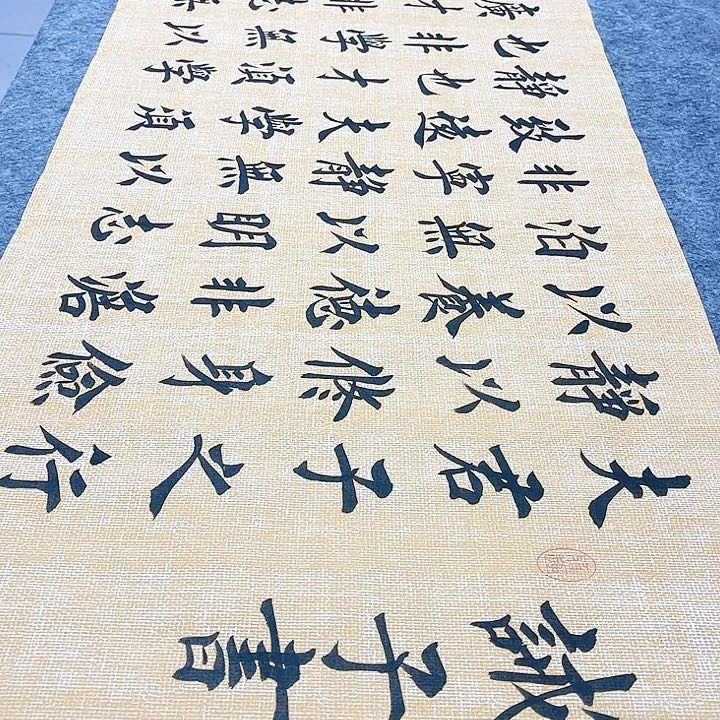 誡子書
夫君子之行
靜以修身儉
以養德非澹
泊無以明志
非寧靜無以
致遠夫學須
靜也才須學
也非學無以
廣才非志